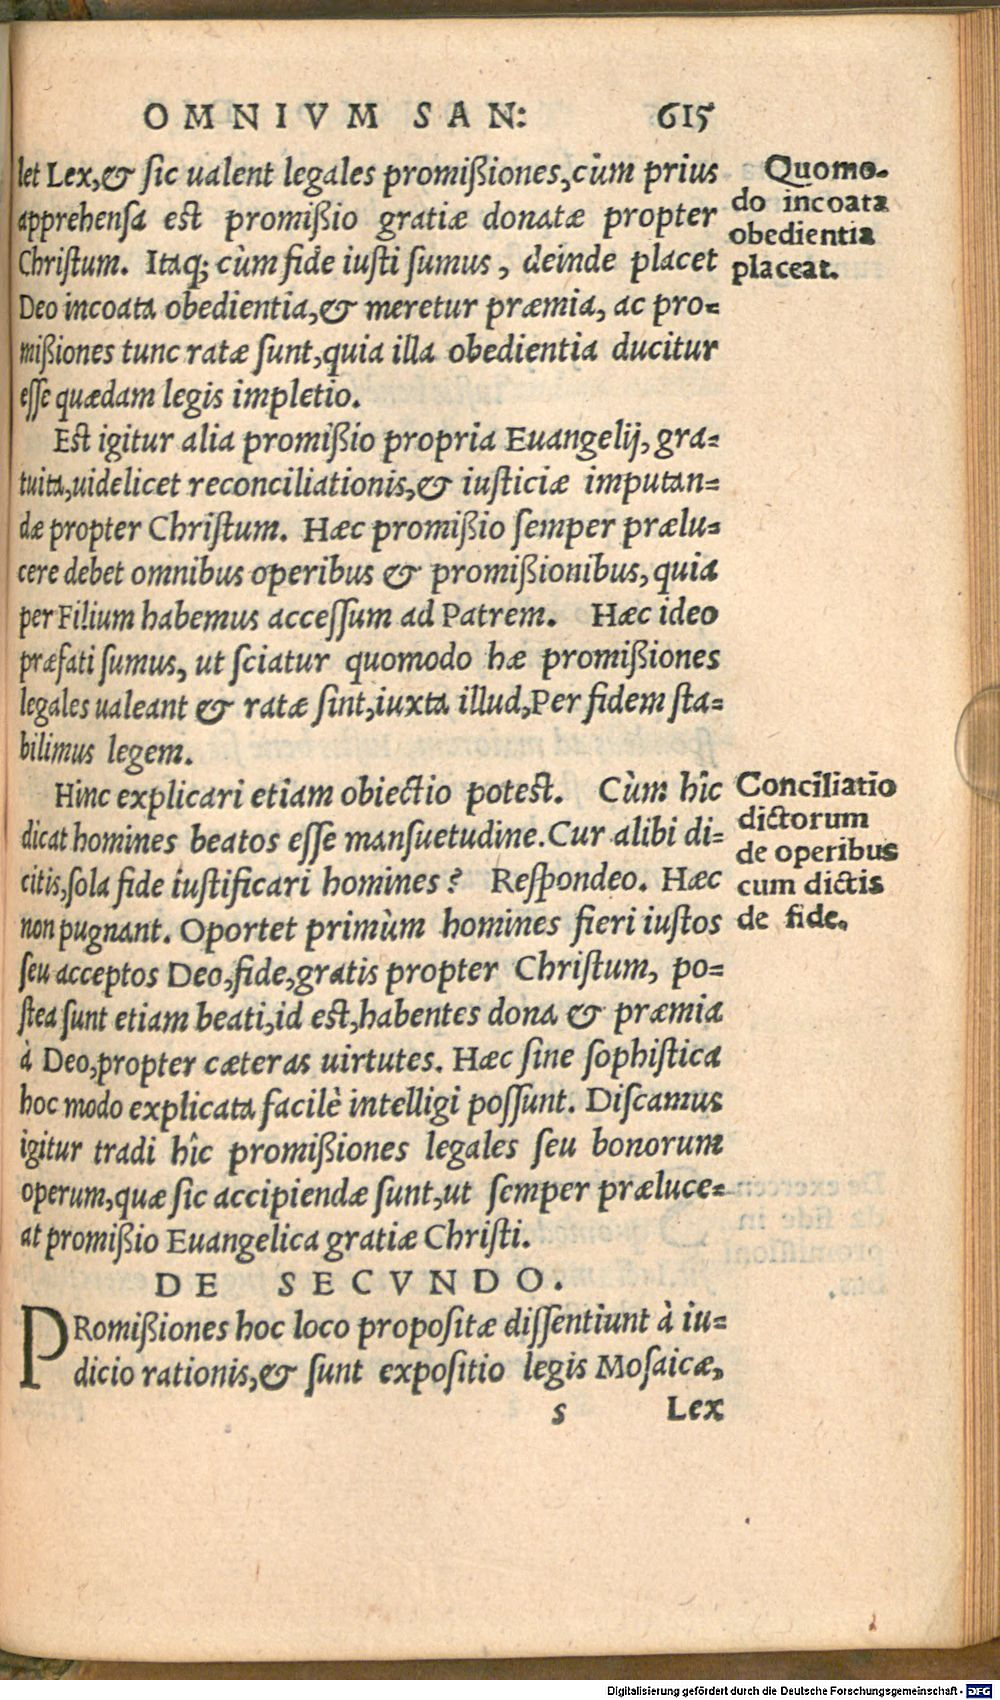 OMNIVM SAN: 615
let Lex,& sic ualent legales promißiones,cùm prius
apprehensa est promißio gratiæ donatæ propter
Christum. Itaq; cùm fide iusti sumus, deinde placet
Deo incoata obedientia,& meretur præmia, ac pro=
mißiones tunc ratæ sunt,quia illa obedientia ducitur
esse quædam legis impletio.
Quomo-
do incoata
obedientia
placeat.
Est igitur alia promißio propria Euangelij, gra=
tuita,uidelicet reconciliationis,& iusticiæ imputan=
dæ propter Christum. Hæc promißio semper prælu=
cere debet omnibus operibus & promißionibus, quia
per Filium habemus accessum ad Patrem. Hæc ideo
præfati sumus, ut sciatur quomodo hæ promißiones
legales ualeant & ratæ sint,iuxta illud,Per fidem sta=
bilimus legem.
Hinc explicari etiam obiectio potest. Cùm hîc
dicat homines beatos esse mansuetudine.Cur alibi di=
citis,sola fide iustificari homines? Respondeo. Hæc
non pugnant. Oportet primùm homines fieri iustos
seu acceptos Deo,fide,gratis propter Christum, po=
stea sunt etiam beati,id est,habentes dona & præmia
à Deo,propter cæteras uirtutes. Hæc sine sophistica
hoc modo explicata facilè intelligi possunt. Discamus
igitur tradi hîc promißiones legales seu bonorum
operum,quæ sic accipiendæ sunt,ut semper præluce=
at promißio Euangelica gratiæ Christi.
Conciliatio
dictorum
de operibus
cum dictis
de fide.
DE SECVNDO.
PRomißiones hoc loco propositæ dissentiunt à iu=
dicio rationis,& sunt expositio legis Mosaicæ,
s Lex
Digitalisierung gefördert durch die Deutsche Forschungsgemeinschaft - DFG